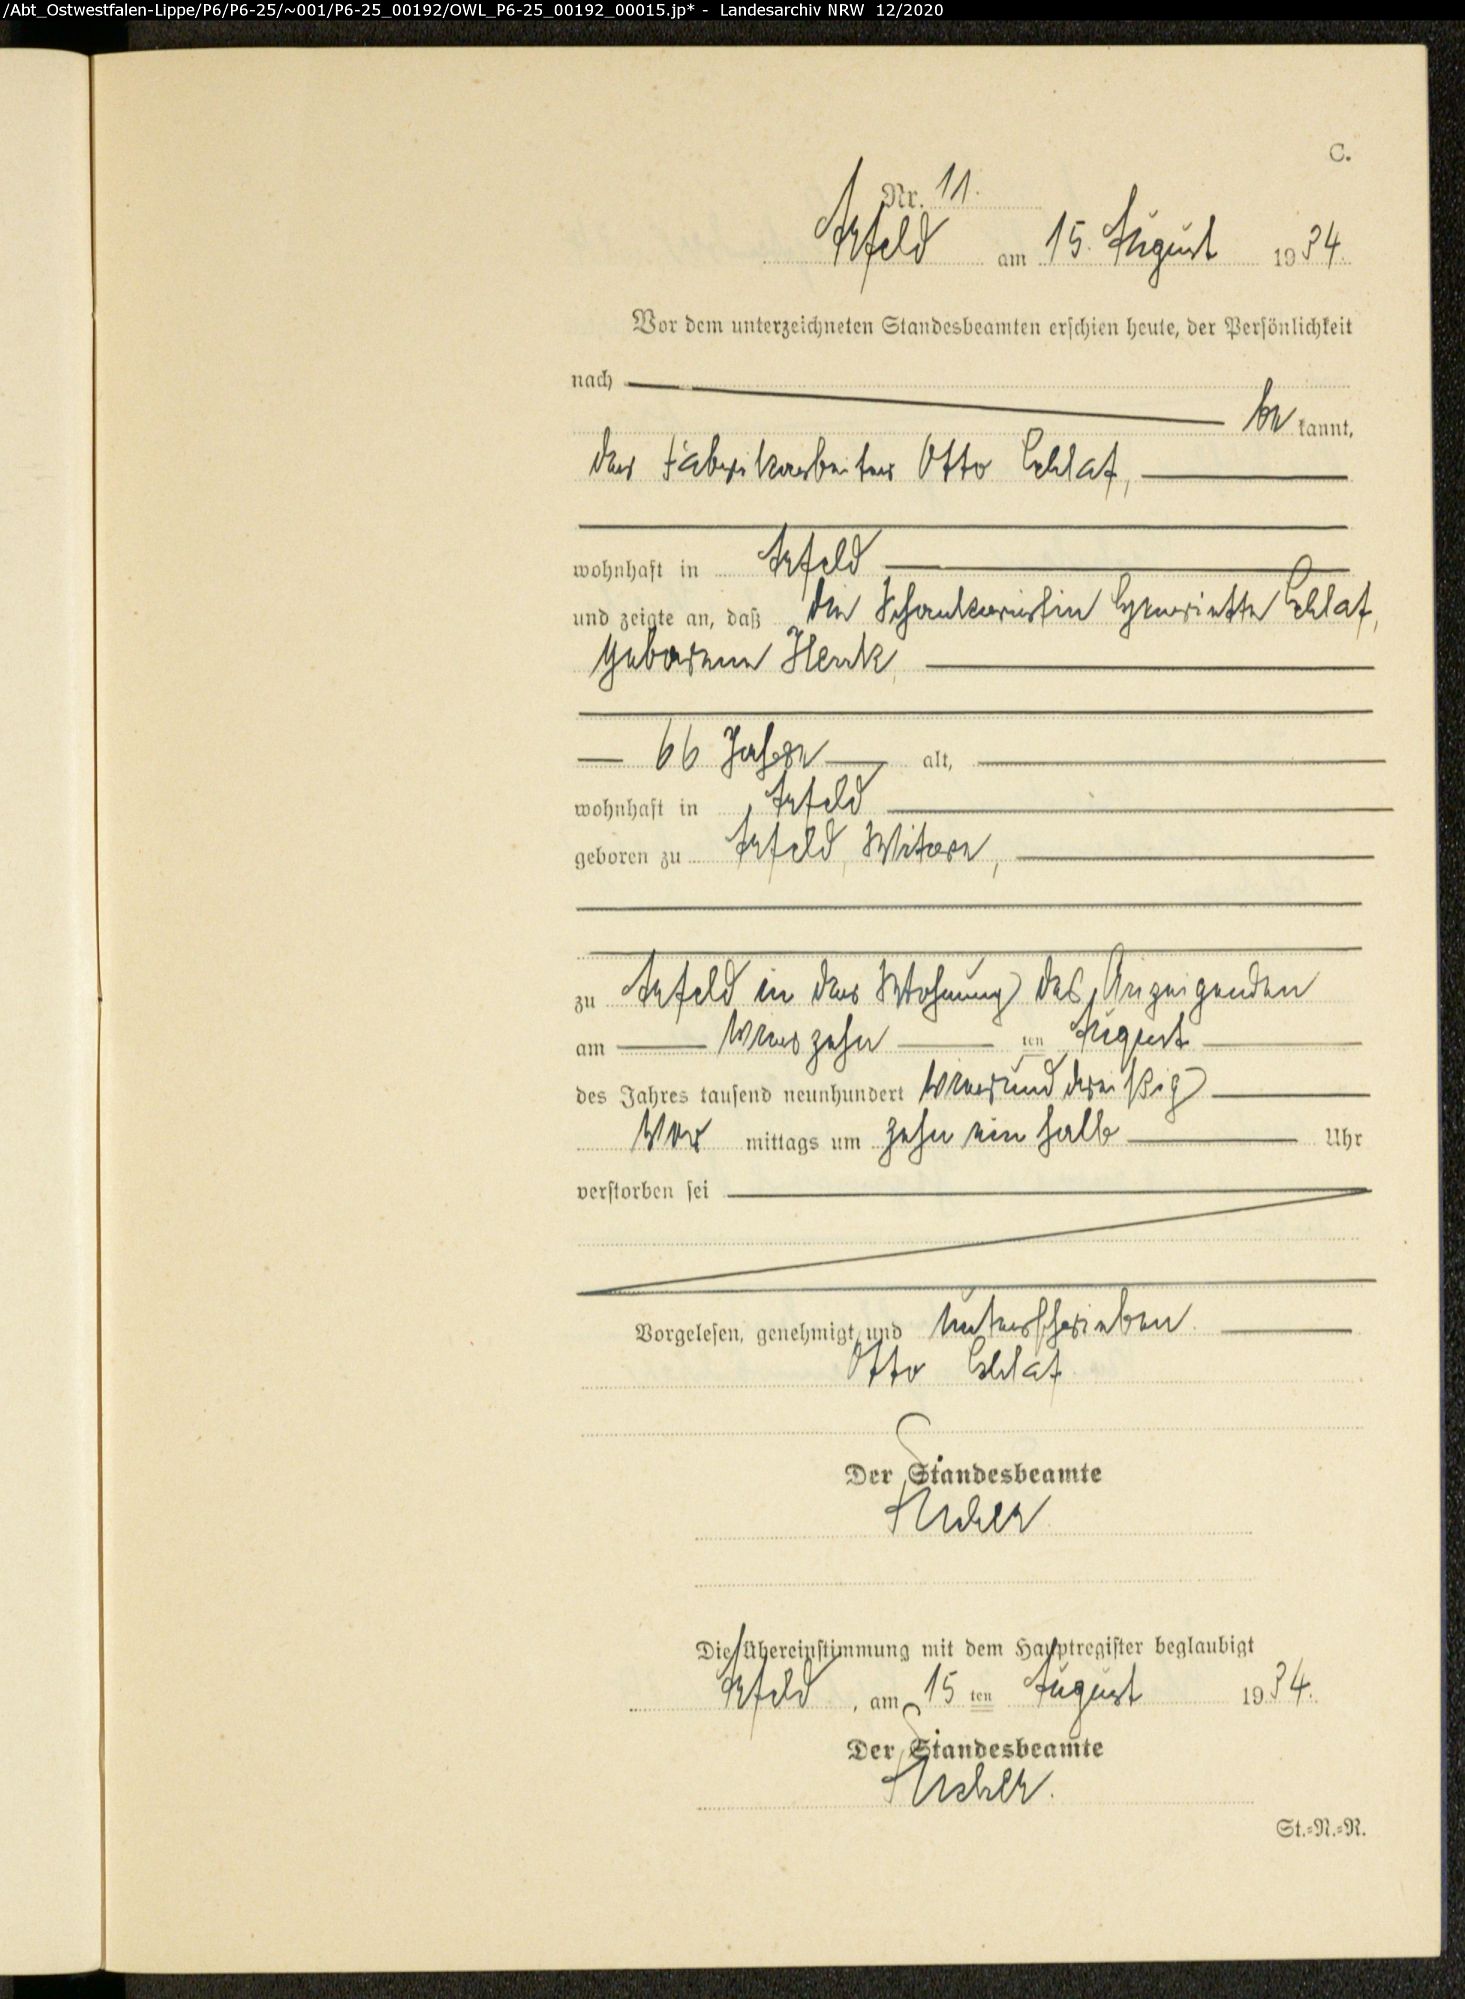 /Abt_Ostwestfalen-Lippe/P6/P6-25/~001/P6-25_00192/OWL_P6-25_00192_00015.jp* - Landesarchiv NRW 12/2020
C.
Nr. 11.
Arfeld am 15. August 1934.
Vor dem unterzeichneten Standesbeamten erschien heute, der Persönlichkeit
nach
be kannt,
der Fabrikarbeiter Otto Schlaf,
wohnhaft in Arfeld
und zeigte an, daß die Schankwirtin Henriette Schlaf,
geborene Henk,
66 Jahre alt,
wohnhaft in Arfeld
geboren zu Arfeld, Witwe,
zu Arfeld in der Wohnung des Anzeigenden
am vierzehn ten August
des Jahres tausend neunhundert vierunddreißig
Vor mittags um zehn ein halb Uhr
verstorben sei
Vorgelesen, genehmigt und unterschrieben.
Otto Schlaf
Der Standesbeamte
Die Übereinstimmung mit dem Hauptregister beglaubigt
Arfeld, am 15 ten August 1934.
Der Standesbeamte
St.=N.=R.